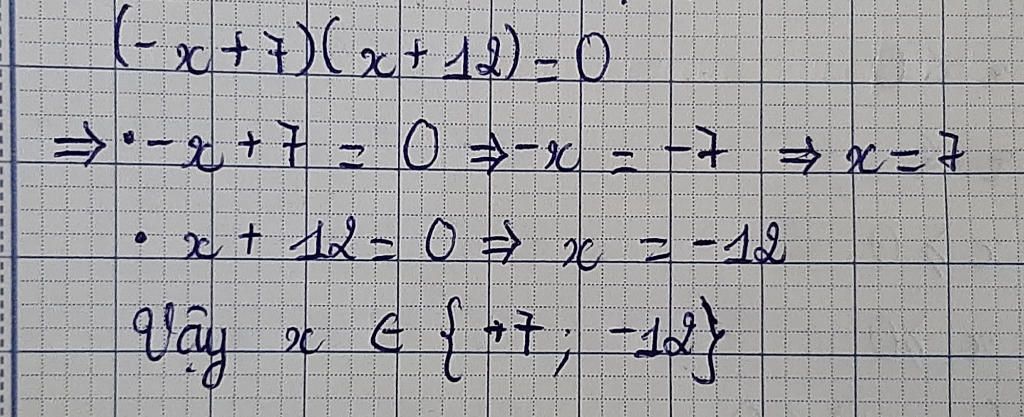 (-x+7)(x+12)=0
⇒ • -x+7=0 ⇒ -x=-7 ⇒ x=7
• x+12=0 ⇒ x=-12
Vậy x ∈ {+7; -12}